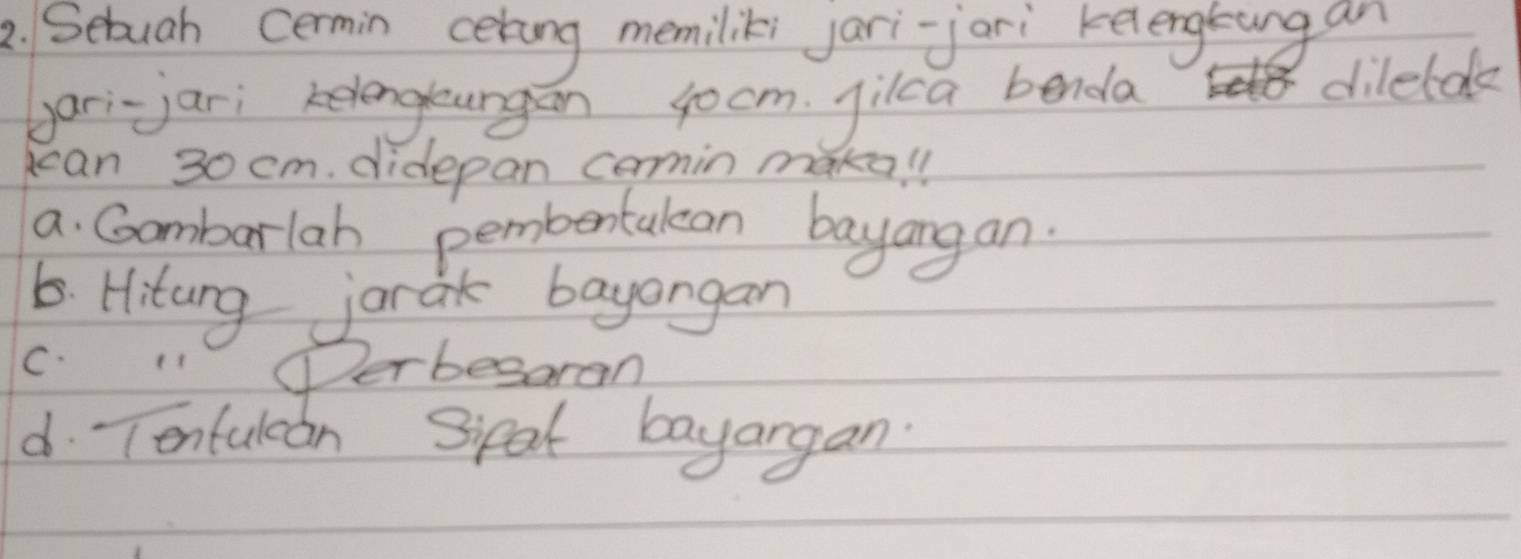 2. Sebuah Cermin cekung memiliki jari-jari kelengkungan
jari-jari kelengkungan 40 cm. jika benda diletak
kan 30 cm. didepan cermin maka!!
a. Gambarlah pembentukan bayangan.
b. Hitung jarak bayangan
c. " Perbesaran
d. Tentukan Sifat bayangan.